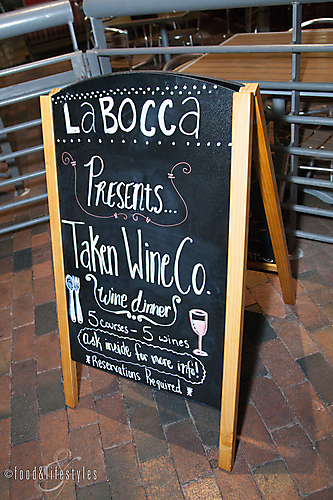 LaBOCCa
Presents...
Taken Wine Co.
wine dinner
5 courses - 5 wines
ask inside for more info!
*Reservations Required*
©food&lifestyles